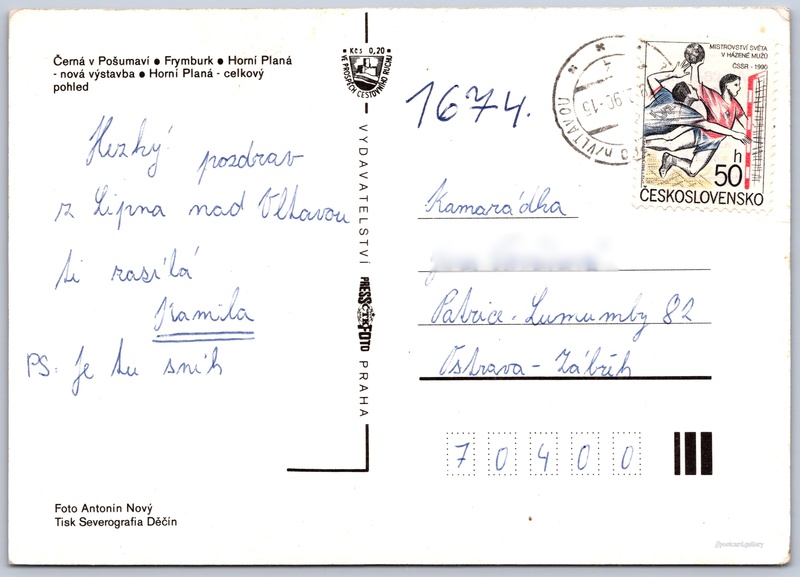 Černá v Pošumaví ● Frymburk ● Horní Planá
- nová výstavba ● Horní Planá - celkový
pohled
Hezký pozdrav
z Lipna nad Vltavou
ti zasílá
Kamila
PS: Je tu sníh
Foto Antonín Nový
Tisk Severografia Děčín
Kčs 0,20
VE PROSPĚCH CESTOVNÍHO RUCHU
VYDAVATELSTVÍ
PRESSFOTO
PRAHA
1674.
MISTROVSTVÍ SVĚTA
V HÁZENÉ MUŽŮ
ČSSR - 1990
50 h
ČESKOSLOVENSKO
90-15
n/VLTAVOU
Kamarádka
Patrice-Lumumby 82
Ostrava-Zábřeh
70400
postcard.gallery